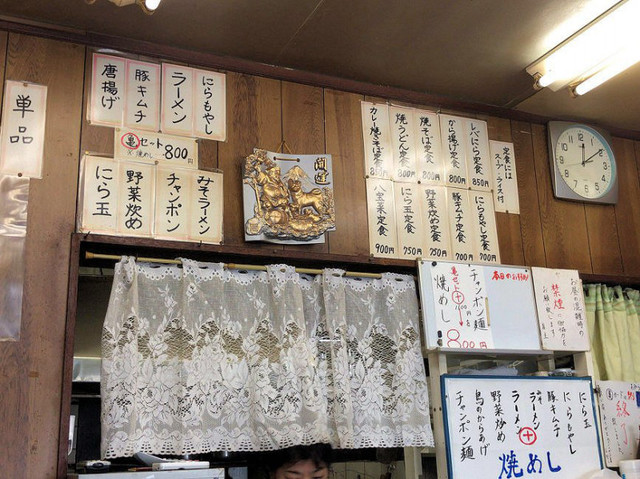 単品
にらもやし
ラーメン
豚キムチ
唐揚げ
亀セット
※焼めし
800
みそラーメン
チャンポン
野菜炒め
にら玉
開運
定食には
スープ・ライス付
レバにら定食
800円
から揚げ定食
800円
焼そば定食
焼うどん定食
カレー焼そば定食
にらもやし定食
700円
豚キムチ定食
700円
野菜炒め定食
750円
にら玉定食
750円
八宝菜定食
900円
本日の
チャンポン麺
焼めし
800円
お昼の混雑時
禁煙
お願い致します
店主
にら玉
にらもやし
豚キムチ
ラーメン
野菜炒め
鳥のからあげ
チャンポン麺
+
焼めし